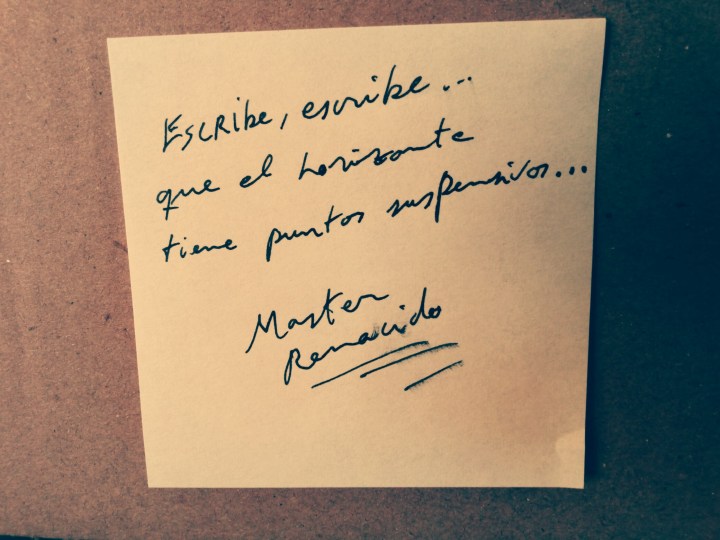 Escribe, escribe...
que el horizonte
tiene puntos suspensivos...
Master
Renacido